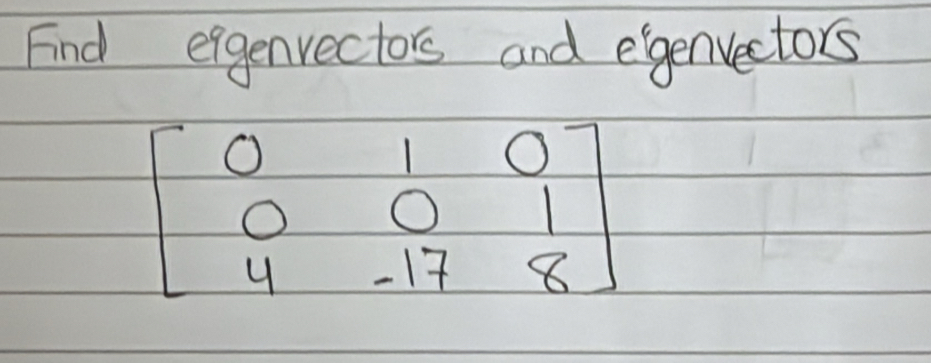 Find eigenvectors and eigenvectors
0 1 0
0 0 1
4 -17 8